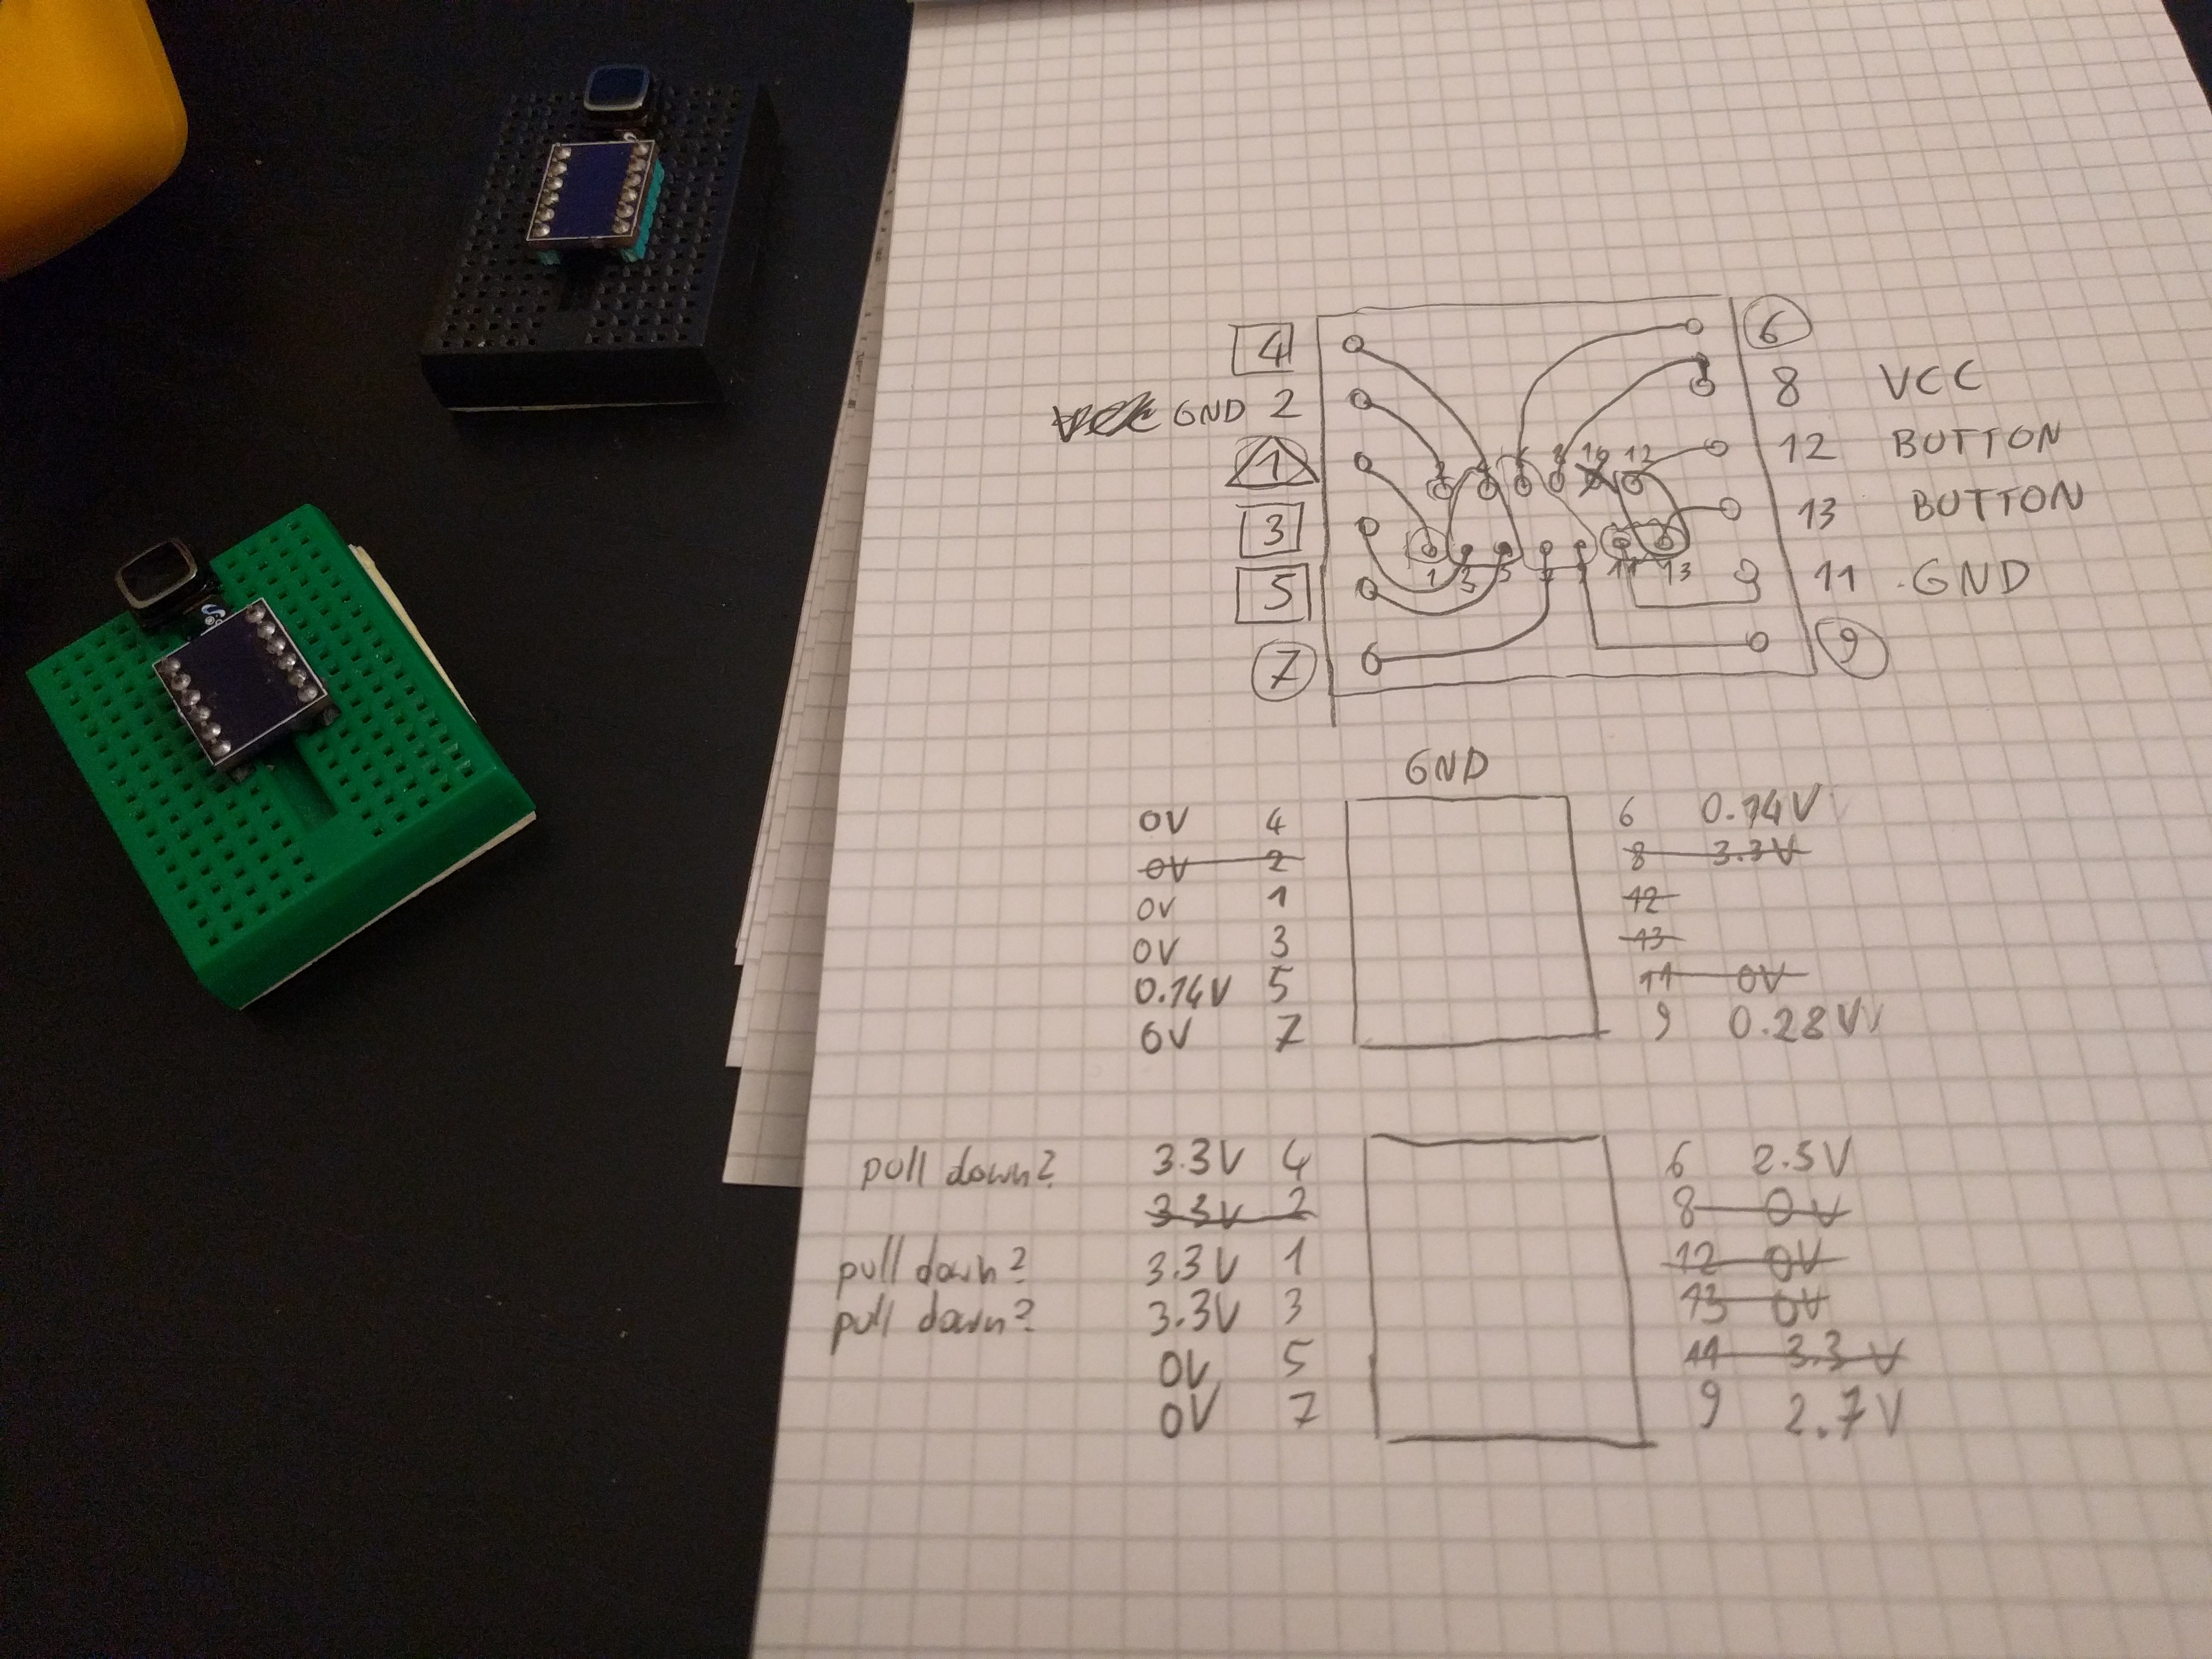 4 6
GND 2 8 VCC
2 4 6 8 10 12 12 BUTTON
1
3 13 BUTTON
1 3 5 7 9 11 13
5 11 GND
7 9
GND
0V 4 6 0.14V
0V 2 8 3.3V
0V 1 12
0V 3 13
0.14V 5 11 0V
0V 7 9 0.28V
pull down? 3.3V 4 6 2.5V
3.3V 2 8 0V
pull down? 3.3V 1 12 0V
pull down? 3.3V 3 13 0V
0V 5 11 3.3V
0V 7 9 2.7V